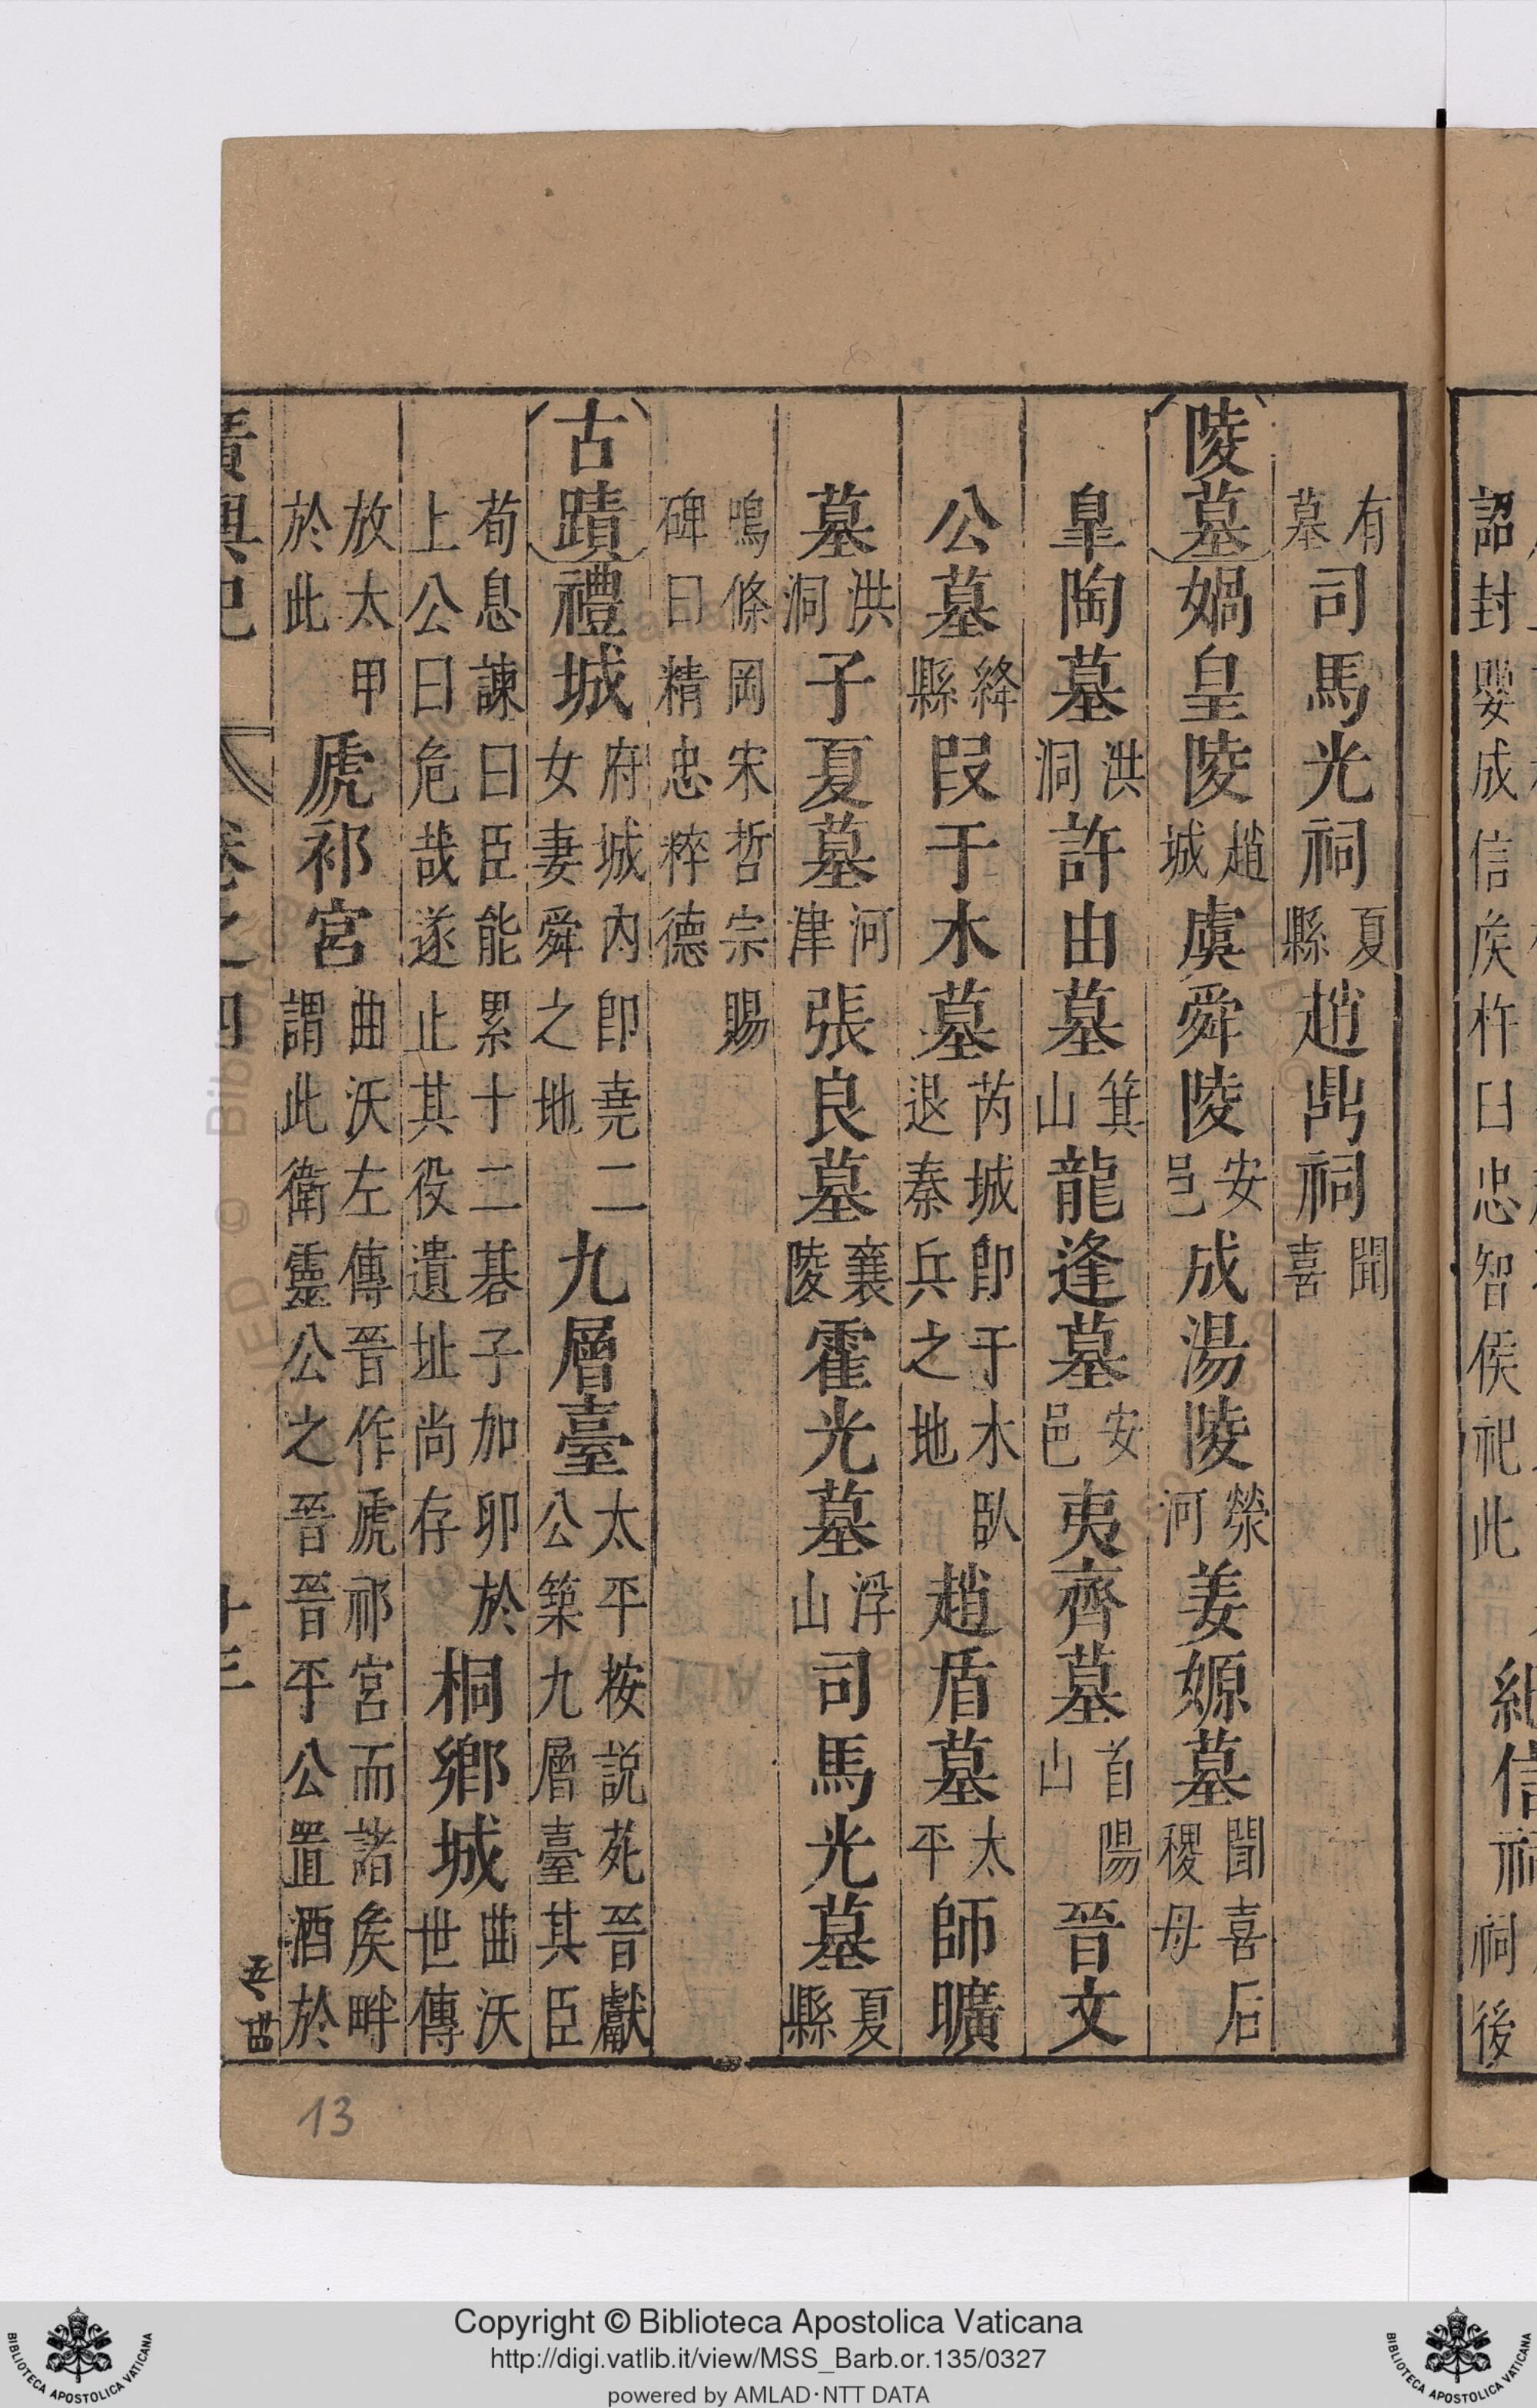 詔封嬰成信矦杵臼忠智侯祀此 紀信祠 祠後
有墓 司馬光祠 夏縣 趙鼎祠 聞喜
陵墓 媧皇陵 趙城 虞舜陵 安邑 成湯陵 滎河 姜嫄墓 聞喜后稷母
皐陶墓 洪洞 許由墓 箕山 龍逢墓 安邑 夷齊墓 首陽山 晉文
公墓 絳縣 段于木墓 芮城即于木臥退秦兵之地 趙盾墓 太平 師曠
墓 洪洞 子夏墓 河津 張良墓 襄陵 霍光墓 浮山 司馬光墓 夏縣
鳴條岡宋哲宗賜碑曰精忠粹德
古蹟 禮城 府城內即堯二女妻舜之地 九層臺 太平按説苑晉獻公築九層臺其臣
荀息諫曰臣能累十二棊子加卵於上公曰危哉遂止其役遺址尚存 桐鄉城 曲沃世傳
放太甲於此 虒祁宮 曲沃左傳晉作虒祁宮而諸矦畔於謂此衛靈公之晉晉平公置酒於
廣輿記 卷之四 十三
13
Copyright © Biblioteca Apostolica Vaticana
http://digi.vatlib.it/view/MSS_Barb.or.135/0327
powered by AMLAD·NTT DATA
BIBLIOTECA APOSTOLICA VATICANA
BIBLIOTECA APOSTOLICA VATICANA